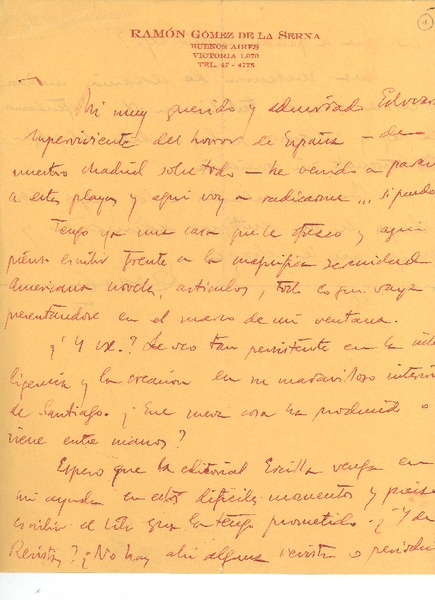 1
RAMÓN GÓMEZ DE LA SERNA
BUENOS AIRES
VICTORIA 1.970
TEL. 47 - 4775
Mi muy querido y admirado Edwar
Superviviente del horror de España — de
nuestro Madrid sobre todo — he venido a parar
a estas playas y aquí voy a radicarme... si puedo
Tengo ya una casa que le ofrezco y aquí
pienso escribir frente a la magnífica serenidad
Americana novela, artículos, todo lo que vaya
presentándose en el marco de mi ventana.
¿Y V.? Le veo tan persistente en la inte
ligencia y la creación en su maravilloso interior
de Santiago. ¿Que nueva cosa ha producido o
tiene entre manos?
Espero que la editorial Ercilla venga en
mi ayuda en estos difíciles momentos y pienso
escribir el libro que la tengo prometido. ¿Y de
Revistas? ¿No hay ahí alguna revista o periódico